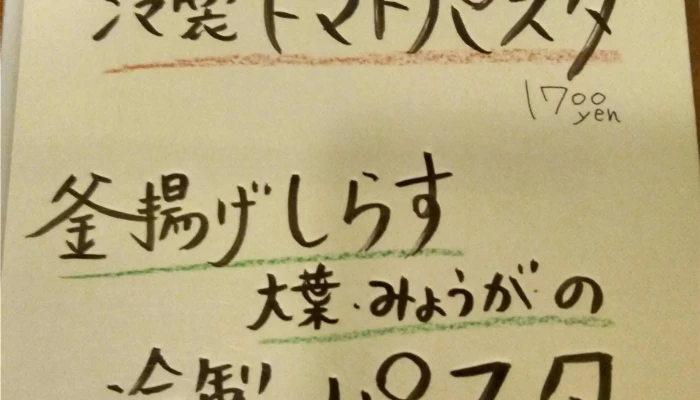 冷製トマトパスタ
1700
yen
釜揚げしらす
大葉・みょうがの
冷製パスタ